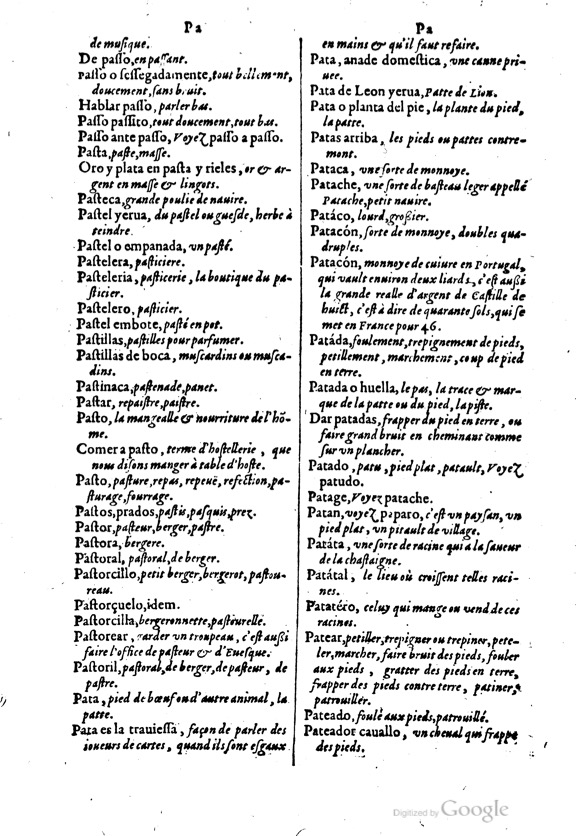 Pa
de musique.
De passo, en passant.
Passo o sessegadamente, tout bellement,
doucement, sans bruit.
Hablar passo, parler bas.
Passo passito, tout doucement, tout bas.
Passo ante passo, Voyez passo a passo.
Pasta, paste, masse.
Oro y plata en pasta y rieles, or & ar-
gent en masse & lingots.
Pasteca, grande poulie de nauire.
Pastel yerua, du pastel ou guesde, herbe à
teindre.
Pastel o empanada, vn pasté.
Pastelera, pasticiere.
Pasteleria, pasticerie, la boutique du pa-
sticier.
Pastelero, pasticier.
Pastel embote, pasté en pot.
Pastillas, pastilles pour parfumer.
Pastillas de boca, muscardins ou musca-
dins.
Pastinaca, pastenade, panet.
Pastar, repaistre, paistre.
Pasto, la mangealle & nourriture de l'hō-
me.
Comer a pasto, terme d'hostellerie, que
nous disons manger à table d'hoste.
Pasto, pasture, repas, repeuë, refection, pa-
sturage, fourrage.
Pastos, prados, pastis, pasquis, prez.
Pastor, pasteur, berger, pastre.
Pastora, bergere.
Pastoral, pastoral, de berger.
Pastorcillo, petit berger, bergerot, pastou-
reau.
Pastorçuelo, idem.
Pastorcilla, bergeronnette, pastourelle.
Pastorear, garder vn troupeau, c'est aussi
faire l'office de pasteur & d'Euesque.
Pastoril, pastoral, de berger, de pasteur, de
pastre.
Pata, pied de bœuf ou d'autre animal, la
patte.
Pata es la trauiessa, façon de parler des
ioueurs de cartes, quand ils sont esgaux
Pa
en mains & qu'il faut refaire.
Pata, anade domestica, vne canne pri-
uee.
Pata de Leon yerua, Patte de Lion.
Pata o planta del pie, la plante du pied,
la patte.
Patas arriba, les pieds ou pattes contre-
mont.
Pataca, vne sorte de monnoye.
Patache, vne sorte de basteau leger appellé
Patache, petit nauire.
Patáco, lourd, grossier.
Patacón, sorte de monnoye, doubles qua-
druples.
Patacón, monnoye de cuiure en Portugal,
qui vault enuiron deux liards, c'est aussi
la grande realle d'argent de Castille de
huict, c'est à dire de quarante sols, qui se
met en France pour 46.
Patáda, foulement, trepignement de pieds,
petillement, marchement, coup de pied
en terre.
Patada o huella, le pas, la trace & mar-
que de la patte ou du pied, la piste.
Dar patadas, frapper du pied en terre, ou
faire grand bruit en cheminant comme
sur vn plancher.
Patado, patu, pied plat, patault, Voyez
patudo.
Patage, Voyez patache.
Patan, voyez páparo, c'est vn paysan, vn
pied plat, vn pitault de village.
Patáta, vne sorte de racine qui a la saueur
de la chastaigne.
Patátal, le lieu où croissent telles raci-
nes.
Patatéro, celuy qui mange ou vend de ces
racines.
Patear, petiller, trepigner ou trepiner, pete-
ler, marcher, faire bruit des pieds, fouler
aux pieds, gratter des pieds en terre,
frapper des pieds contre terre, patiner,
patrouiller.
Pateado, foulé aux pieds, patrouillé.
Pateador cauallo, vn cheual qui frappe
des pieds.
Digitized by Google